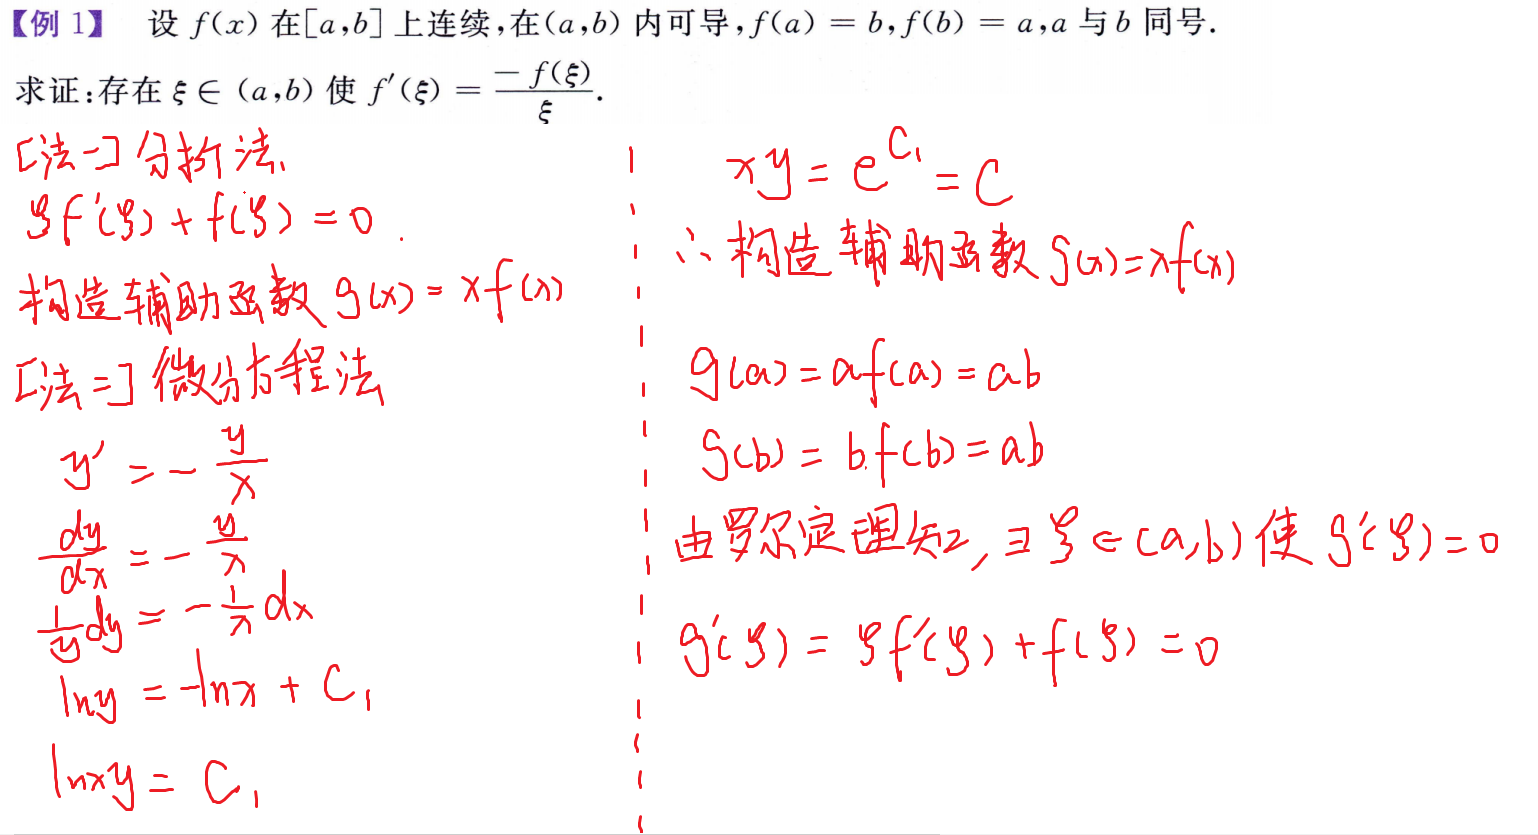 【例 1】 设 f(x) 在[a,b] 上连续,在(a,b) 内可导,f(a) = b,f(b) = a,a 与 b 同号.
求证:存在 ξ ∈ (a,b) 使 f′(ξ) = −f(ξ)/ξ.
[法一] 分析法
ξf′(ξ) + f(ξ) = 0.
构造辅助函数 g(x) = xf(x)
[法二] 微分方程法
y′ = − y/x
dy/dx = − y/x
1/y dy = − 1/x dx
lny = −lnx + C₁
lnxy = C₁
xy = e^C₁ = C
∴ 构造辅助函数 g(x) = xf(x)
g(a) = af(a) = ab
g(b) = b.f(b) = ab
由罗尔定理知, ∃ ξ ∈ (a,b) 使 g′(ξ) = 0
g′(ξ) = ξf′(ξ) + f(ξ) = 0